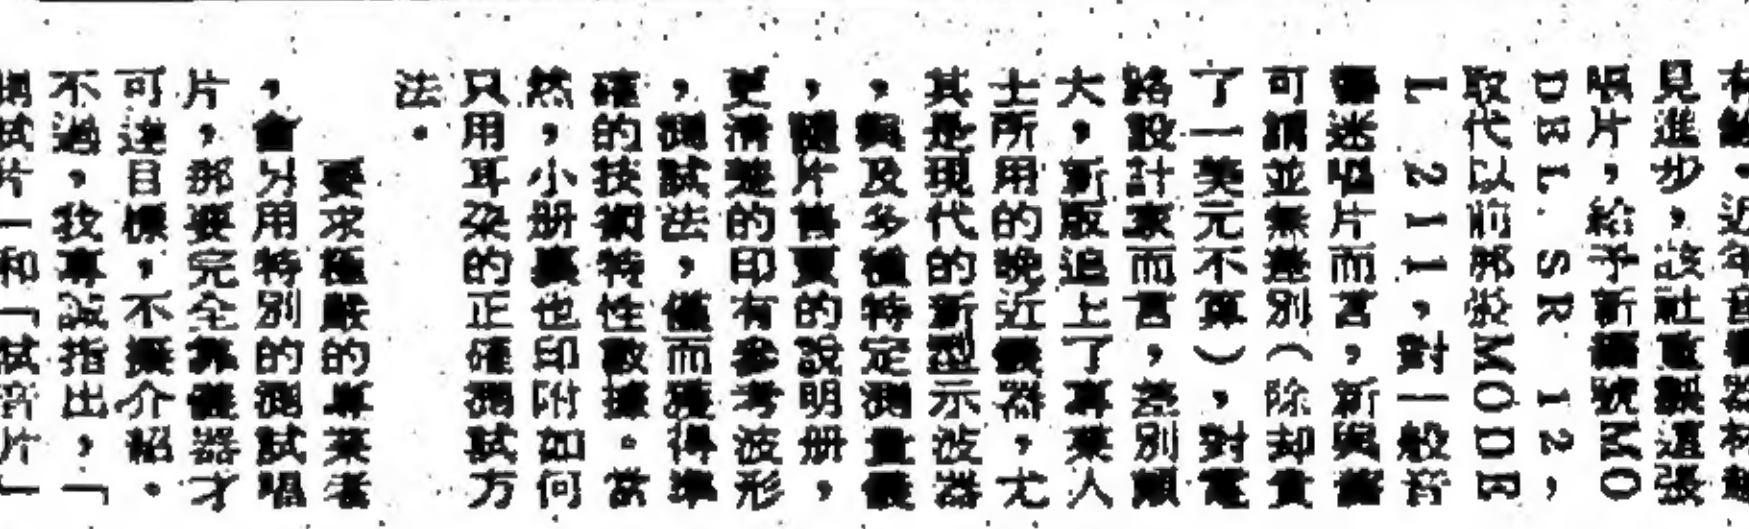 見進步，該社重製這張
唱片，給予新編號MO
DEL. SR 12，
取代以前那張MODE
L 211，對一般音
響迷唱片而言，新與舊
可謂並無差別（除却貴
了一美元不算），對電
路設計家而言，差別頗
大，新版追上了專業人
士所用的晚近儀器，尤
其是現代的新型示波器
，與及多種特定測量儀
，隨片售賣的說明册，
更清楚的印有參考波形
，測試法，僅而獲得準
確的按網特性數據。當
然，小册裏也印附如何
只用耳朶的正確測試方
法。
要求極嚴的專業者
，會另用特別的測試唱
片，那要完全靠儀器才
可達目標，不擬介紹。
不過，我專誠指出，「
試片」和「試音片」